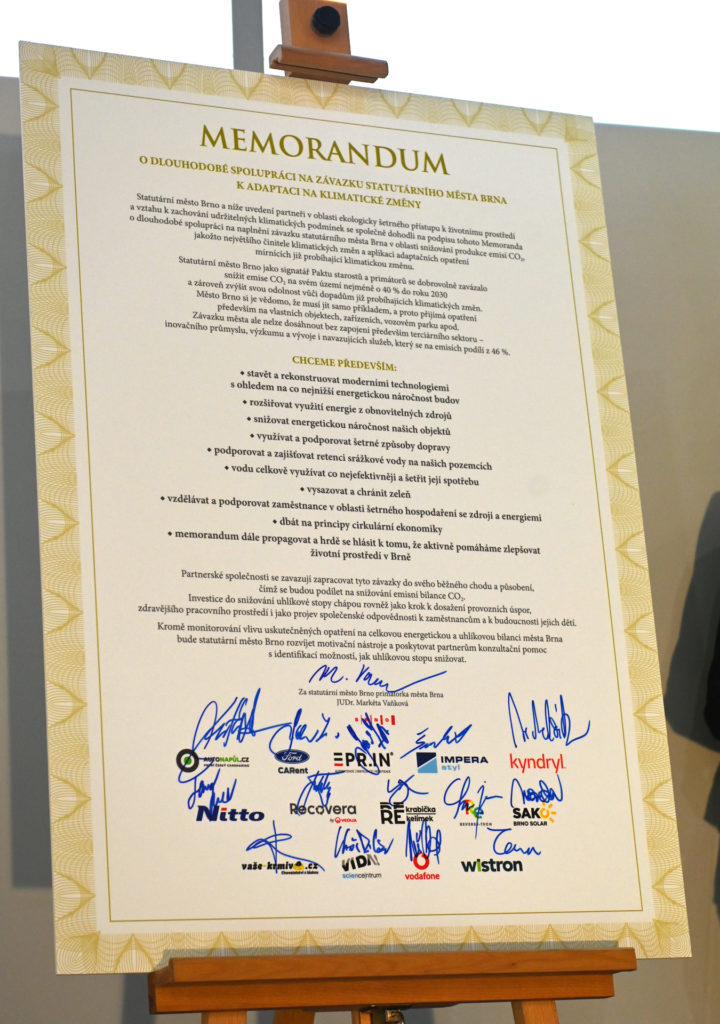 MEMORANDUM
O DLOUHODOBÉ SPOLUPRÁCI NA ZÁVAZKU STATUTÁRNÍHO MĚSTA BRNA
K ADAPTACI NA KLIMATICKÉ ZMĚNY
Statutární město Brno a níže uvedení partneři v oblasti ekologicky šetrného přístupu k životnímu prostředí
a vztahu k zachování udržitelných klimatických podmínek se společně dohodli na podpisu tohoto Memoranda
o dlouhodobé spolupráci na naplnění závazku statutárního města Brna v oblasti snižování produkce emisí CO₂,
jakožto největšího činitele klimatických změn a aplikaci adaptačních opatření
mírnících již probíhající klimatickou změnu.
Statutární město Brno jako signatář Paktu starostů a primátorů se dobrovolně zavázalo
snížit emise CO₂ na svém území nejméně o 40 % do roku 2030
a zároveň zvýšit svou odolnost vůči dopadům již probíhajících klimatických změn.
Město Brno si je vědomo, že musí jít samo příkladem, a proto přijímá opatření
především na vlastních objektech, zařízeních, vozovém parku apod.
Závazku města ale nelze dosáhnout bez zapojení především terciárního sektoru –
inovačního průmyslu, výzkumu a vývoje i navazujících služeb, který se na emisích podílí z 46 %.
CHCEME PŘEDEVŠÍM:
◆ stavět a rekonstruovat moderními technologiemi
s ohledem na co nejnižší energetickou náročnost budov
◆ rozšiřovat využití energie z obnovitelných zdrojů
◆ snižovat energetickou náročnost našich objektů
◆ využívat a podporovat šetrné způsoby dopravy
◆ podporovat a zajišťovat retenci srážkové vody na našich pozemcích
◆ vodu celkově využívat co nejefektivněji a šetřit její spotřebu
◆ vysazovat a chránit zeleň
◆ vzdělávat a podporovat zaměstnance v oblasti šetrného hospodaření se zdroji a energiemi
◆ dbát na principy cirkulární ekonomiky
◆ memorandum dále propagovat a hrdě se hlásit k tomu, že aktivně pomáháme zlepšovat
životní prostředí v Brně
Partnerské společnosti se zavazují zapracovat tyto závazky do svého běžného chodu a působení,
čímž se budou podílet na snižování emisní bilance CO₂.
Investice do snižování uhlíkové stopy chápou rovněž jako krok k dosažení provozních úspor,
zdravějšího pracovního prostředí i jako projev společenské odpovědnosti k zaměstnancům a k budoucnosti jejich dětí.
Kromě monitorování vlivu uskutečněných opatření na celkovou energetickou a uhlíkovou bilanci města Brna
bude statutární město Brno rozvíjet motivační nástroje a poskytovat partnerům konzultační pomoc
s identifikací možností, jak uhlíkovou stopu snižovat.
Za statutární město Brno primátorka města Brna
JUDr. Markéta Vaňková
AUTONAPŮL.CZ
Ford
CARent
EPR.IN
IMPERA
styl
kyndryl
Nitto
Recovera
by VEOLIA
RE krabička
kelímek
SAKO
BRNO SOLAR
vaše-krmivo.cz
VIDA!
sciencecentrum
vodafone
wistron